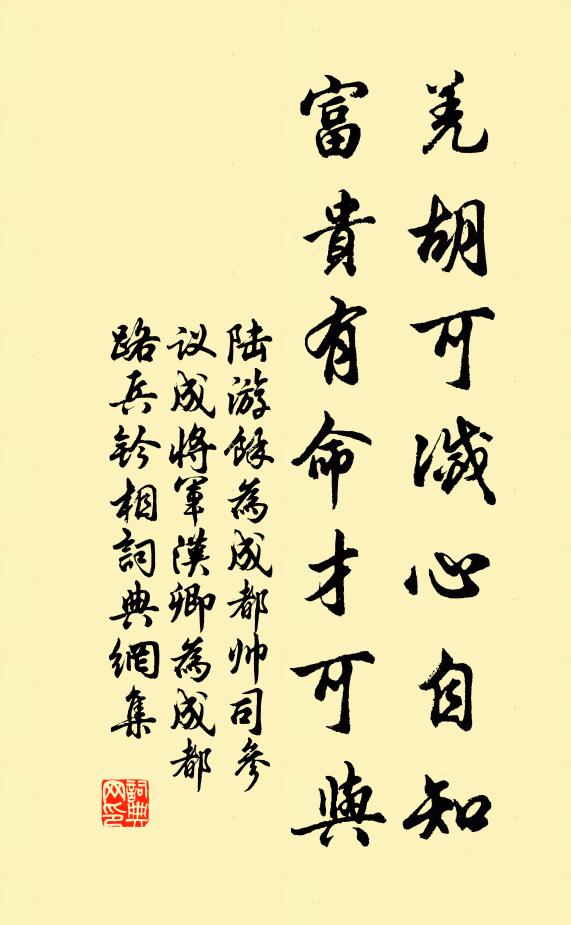 羌胡可滅心自知
富貴有命才可與
陆游餘為成都帅司參
议成將軍漢卿為成都
路兵鈐相詞典網集
詞典网印